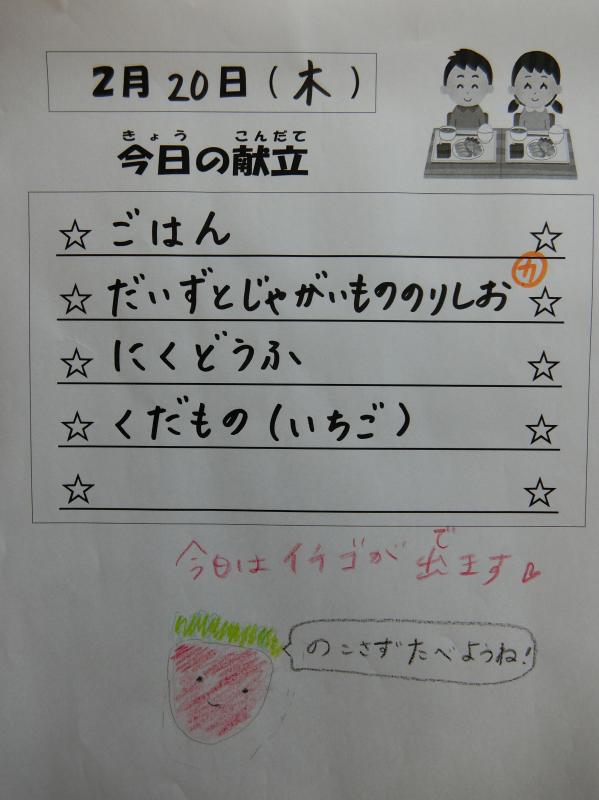 2月20日(木)
きょう こんだて
今日の献立
☆ ごはん ☆
カ
☆ だいずとじゃがいものりしお ☆
☆ にくどうふ ☆
☆ くだもの(いちご) ☆
☆ ☆
で
今日はイチゴが出ます。
のこさずたべようね!